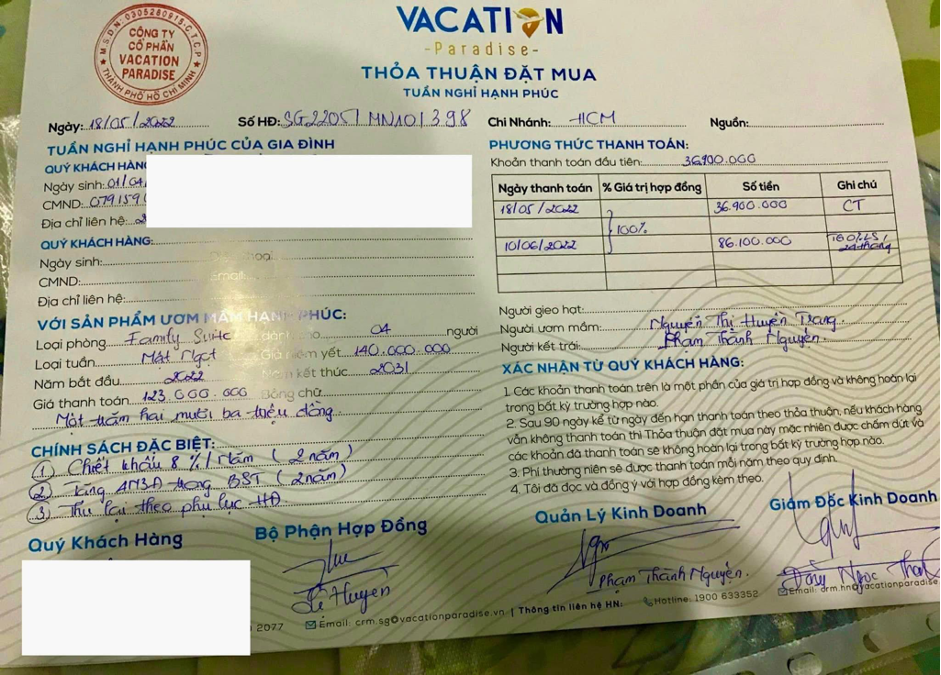 M.S.D.N:0305280915-C.T.C.P
CÔNG TY
CỔ PHẦN
VACATION
PARADISE
THÀNH PHỐ HỒ CHÍ MINH
VACATION
-Paradise-
THỎA THUẬN ĐẶT MUA
TUẦN NGHỈ HẠNH PHÚC
Ngày: 18/05/2022 Số HĐ: SG2205/MN101398 Chi Nhánh: HCM Nguồn:
TUẦN NGHỈ HẠNH PHÚC CỦA GIA ĐÌNH
QUÝ KHÁCH HÀNG
Ngày sinh: 01/04/
CMND: 079159
Địa chỉ liên hệ:
QUÝ KHÁCH HÀNG:
Ngày sinh:
Email:
CMND:
Địa chỉ liên hệ:
VỚI SẢN PHẨM ƯƠM MẦM HẠNH PHÚC:
Loại phòng: Family Suite 04 người
Loại tuần: Mật Ngọt Giá niêm yết: 140.000.000
Năm bắt đầu: 2022 kết thúc: 2031
Giá thanh toán: 123.000.000 Bằng chữ:
Một trăm hai mươi ba triệu đồng
CHÍNH SÁCH ĐẶC BIỆT:
(1) Chiết khấu 8%/năm (2 năm)
(2) Tặng 4N3Đ trong BST (2 năm)
(3) Thu lại theo phụ lục HĐ
PHƯƠNG THỨC THANH TOÁN:
Khoản thanh toán đầu tiên: 36.900.000
Ngày thanh toán % Giá trị hợp đồng Số tiền Ghi chú
18/05/2022 36.900.000 CT
100%
10/06/2022 86.100.000
Người gieo hạt:
Người ươm mầm: Nguyễn Thị Huyền Trang
Người kết trái: Phạm Thành Nguyên.
XÁC NHẬN TỪ QUÝ KHÁCH HÀNG:
1. Các khoản thanh toán trên là một phần của giá trị hợp đồng và không hoàn lại
trong bất kỳ trường hợp nào.
2. Sau 90 ngày kể từ ngày đến hạn thanh toán theo thỏa thuận, nếu khách hàng
vẫn không thanh toán thì Thỏa thuận đặt mua này mặc nhiên được chấm dứt và
các khoản đã thanh toán sẽ không hoàn lại trong bất kỳ trường hợp nào.
3. Phí thường niên sẽ được thanh toán mỗi năm theo quy định.
4. Tôi đã đọc và đồng ý với hợp đồng kèm theo.
Quý Khách Hàng Bộ Phận Hợp Đồng Quản Lý Kinh Doanh Giám Đốc Kinh Doanh
Lệ Huyền Phạm Thành Nguyên. Ngọc
2077 Email: crm.sg@vacationparadise.vn | Thông tin liên hệ HN: Hotline: 1900 633352 Email: crm.hn@vacationparadise